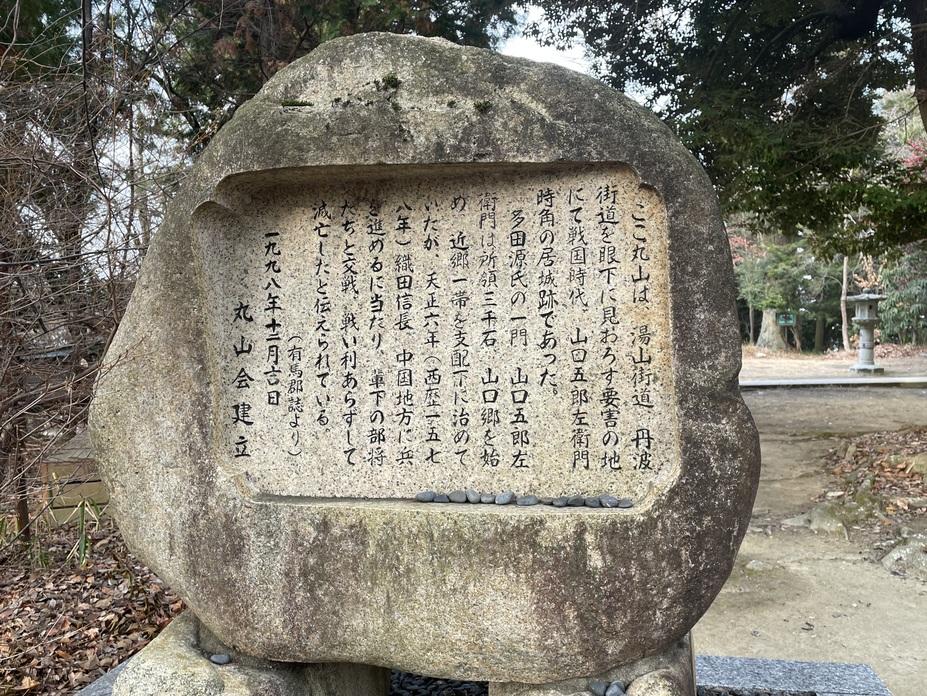 ここ丸山は、湯山街道、丹波
街道を眼下に見おろす要害の地
にて戦国時代、山口五郎左衛門
時角の居城跡であった。
多田源氏の一門、山口五郎左
衛門は所領三千石、山口郷を始
め、近郷一帯を支配下に治めて
いたが、天正六年(西歴一五七
八年)織田信長、中国地方に兵
を進めるに当たり、軍下の部将
たちと交戦、戦い利あらずして
滅亡したと伝えられている。
(有馬郡誌より)
一九九八年十二月吉日
丸山会建立